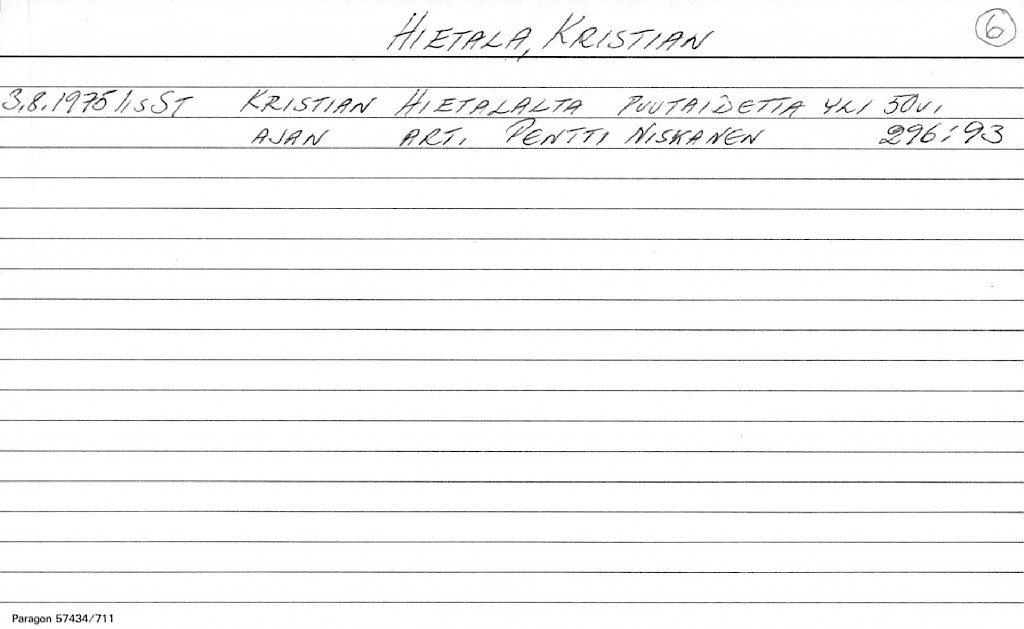 HIETALA, KRISTIAN 6
3.8.1975 IISST KRISTIAN HIETALALTA PUUTAIDETTA YLI 50V.
AJAN ART. PENTTI NISKANEN 296:93
Paragon 57434/711